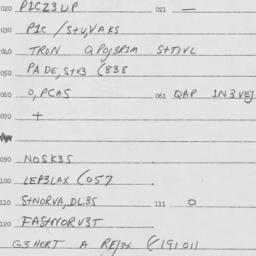 020 P1CZ3UP 021 —
030 P1C /S+U,VAKS
040 TRON QPOJSR1M S+T1VL
050 PADE,S1V3 (838
060 O,PCAS 061 QAP 1N3VEJ
070 +
090 NOSK3S
100 LEP3LAX (057
110 S+NORVA,DL3S 111 O
120 FAS+NORV3T
G3HERT A REJ3X (191011